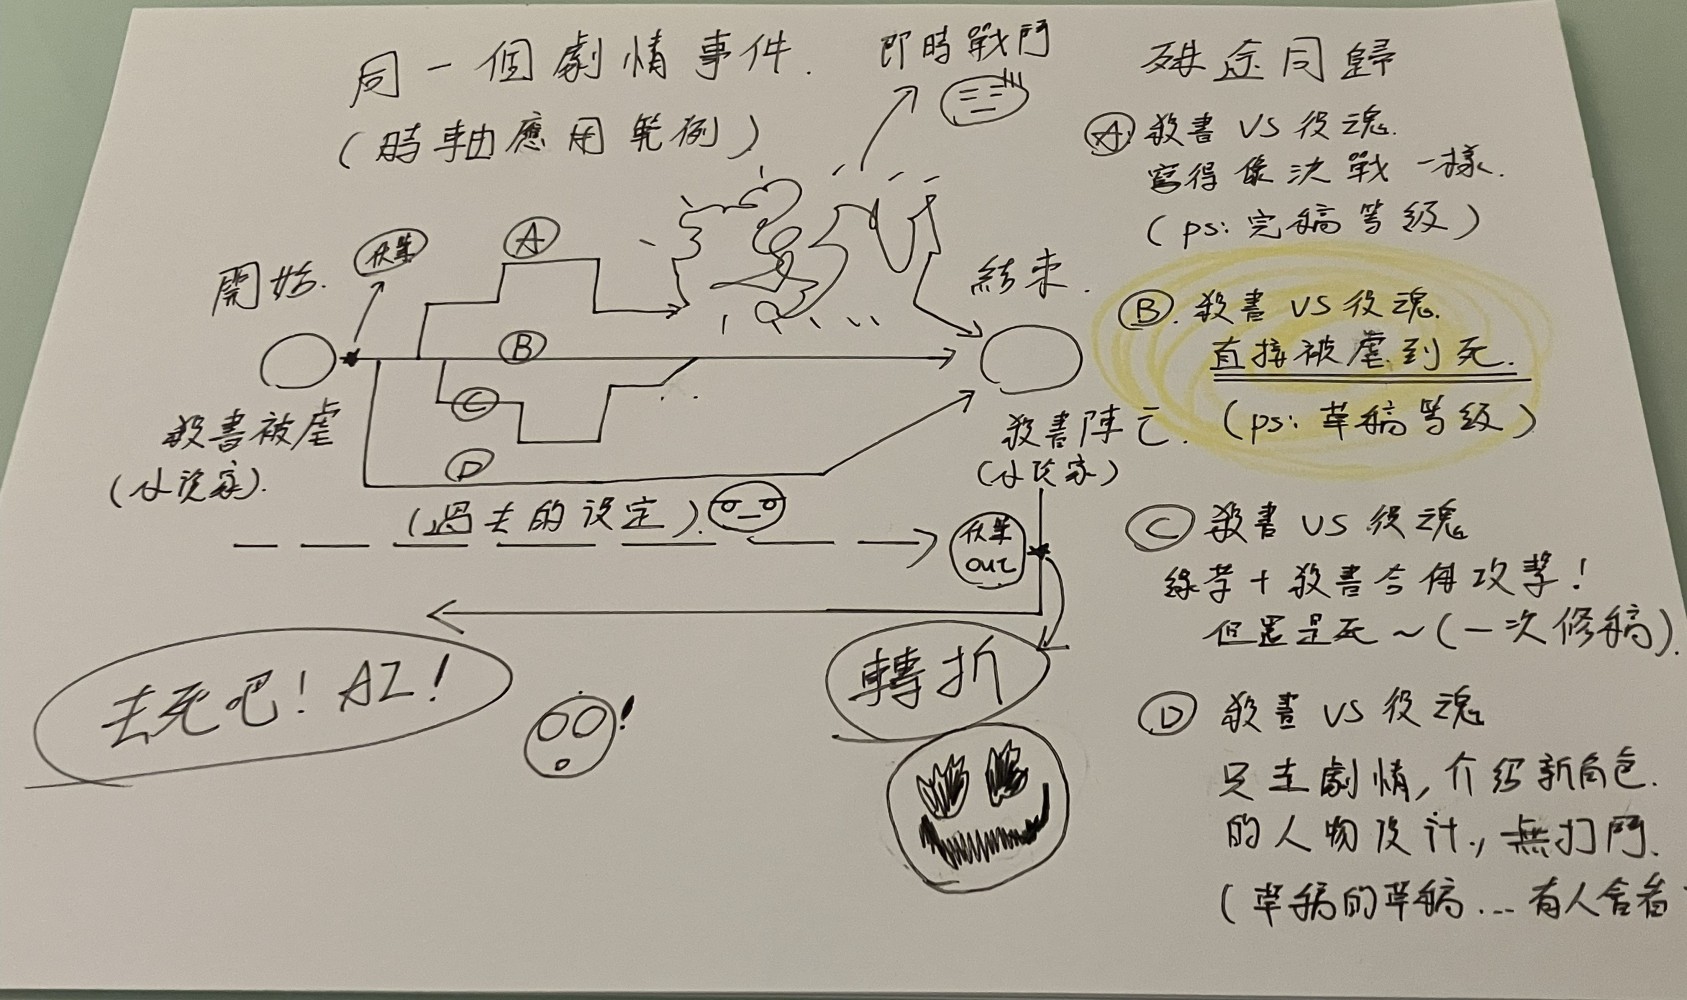 同一個劇情事件.
(時軸應用範例)
即時戰鬥
開始.
伏筆
A
B
C
D
殺書被虐
(小說家).
(過去的設定).
結束.
殺書陣亡.
(小說家)
伏筆
OUT
轉折
去死吧! AI!
殊途同歸
A. 殺書 VS 役魂.
寫得像決戰一樣.
(ps: 完稿等級)
B. 殺書 VS 役魂.
直接被虐到死.
(ps: 草稿等級)
C 殺書 VS 役魂
殺書合併攻擊!
但還是死~(一次修稿).
D 殺書 VS 役魂
只走劇情, 介紹新角色.
的人物設計, 無打鬥.
(草稿的草稿... 有人會看